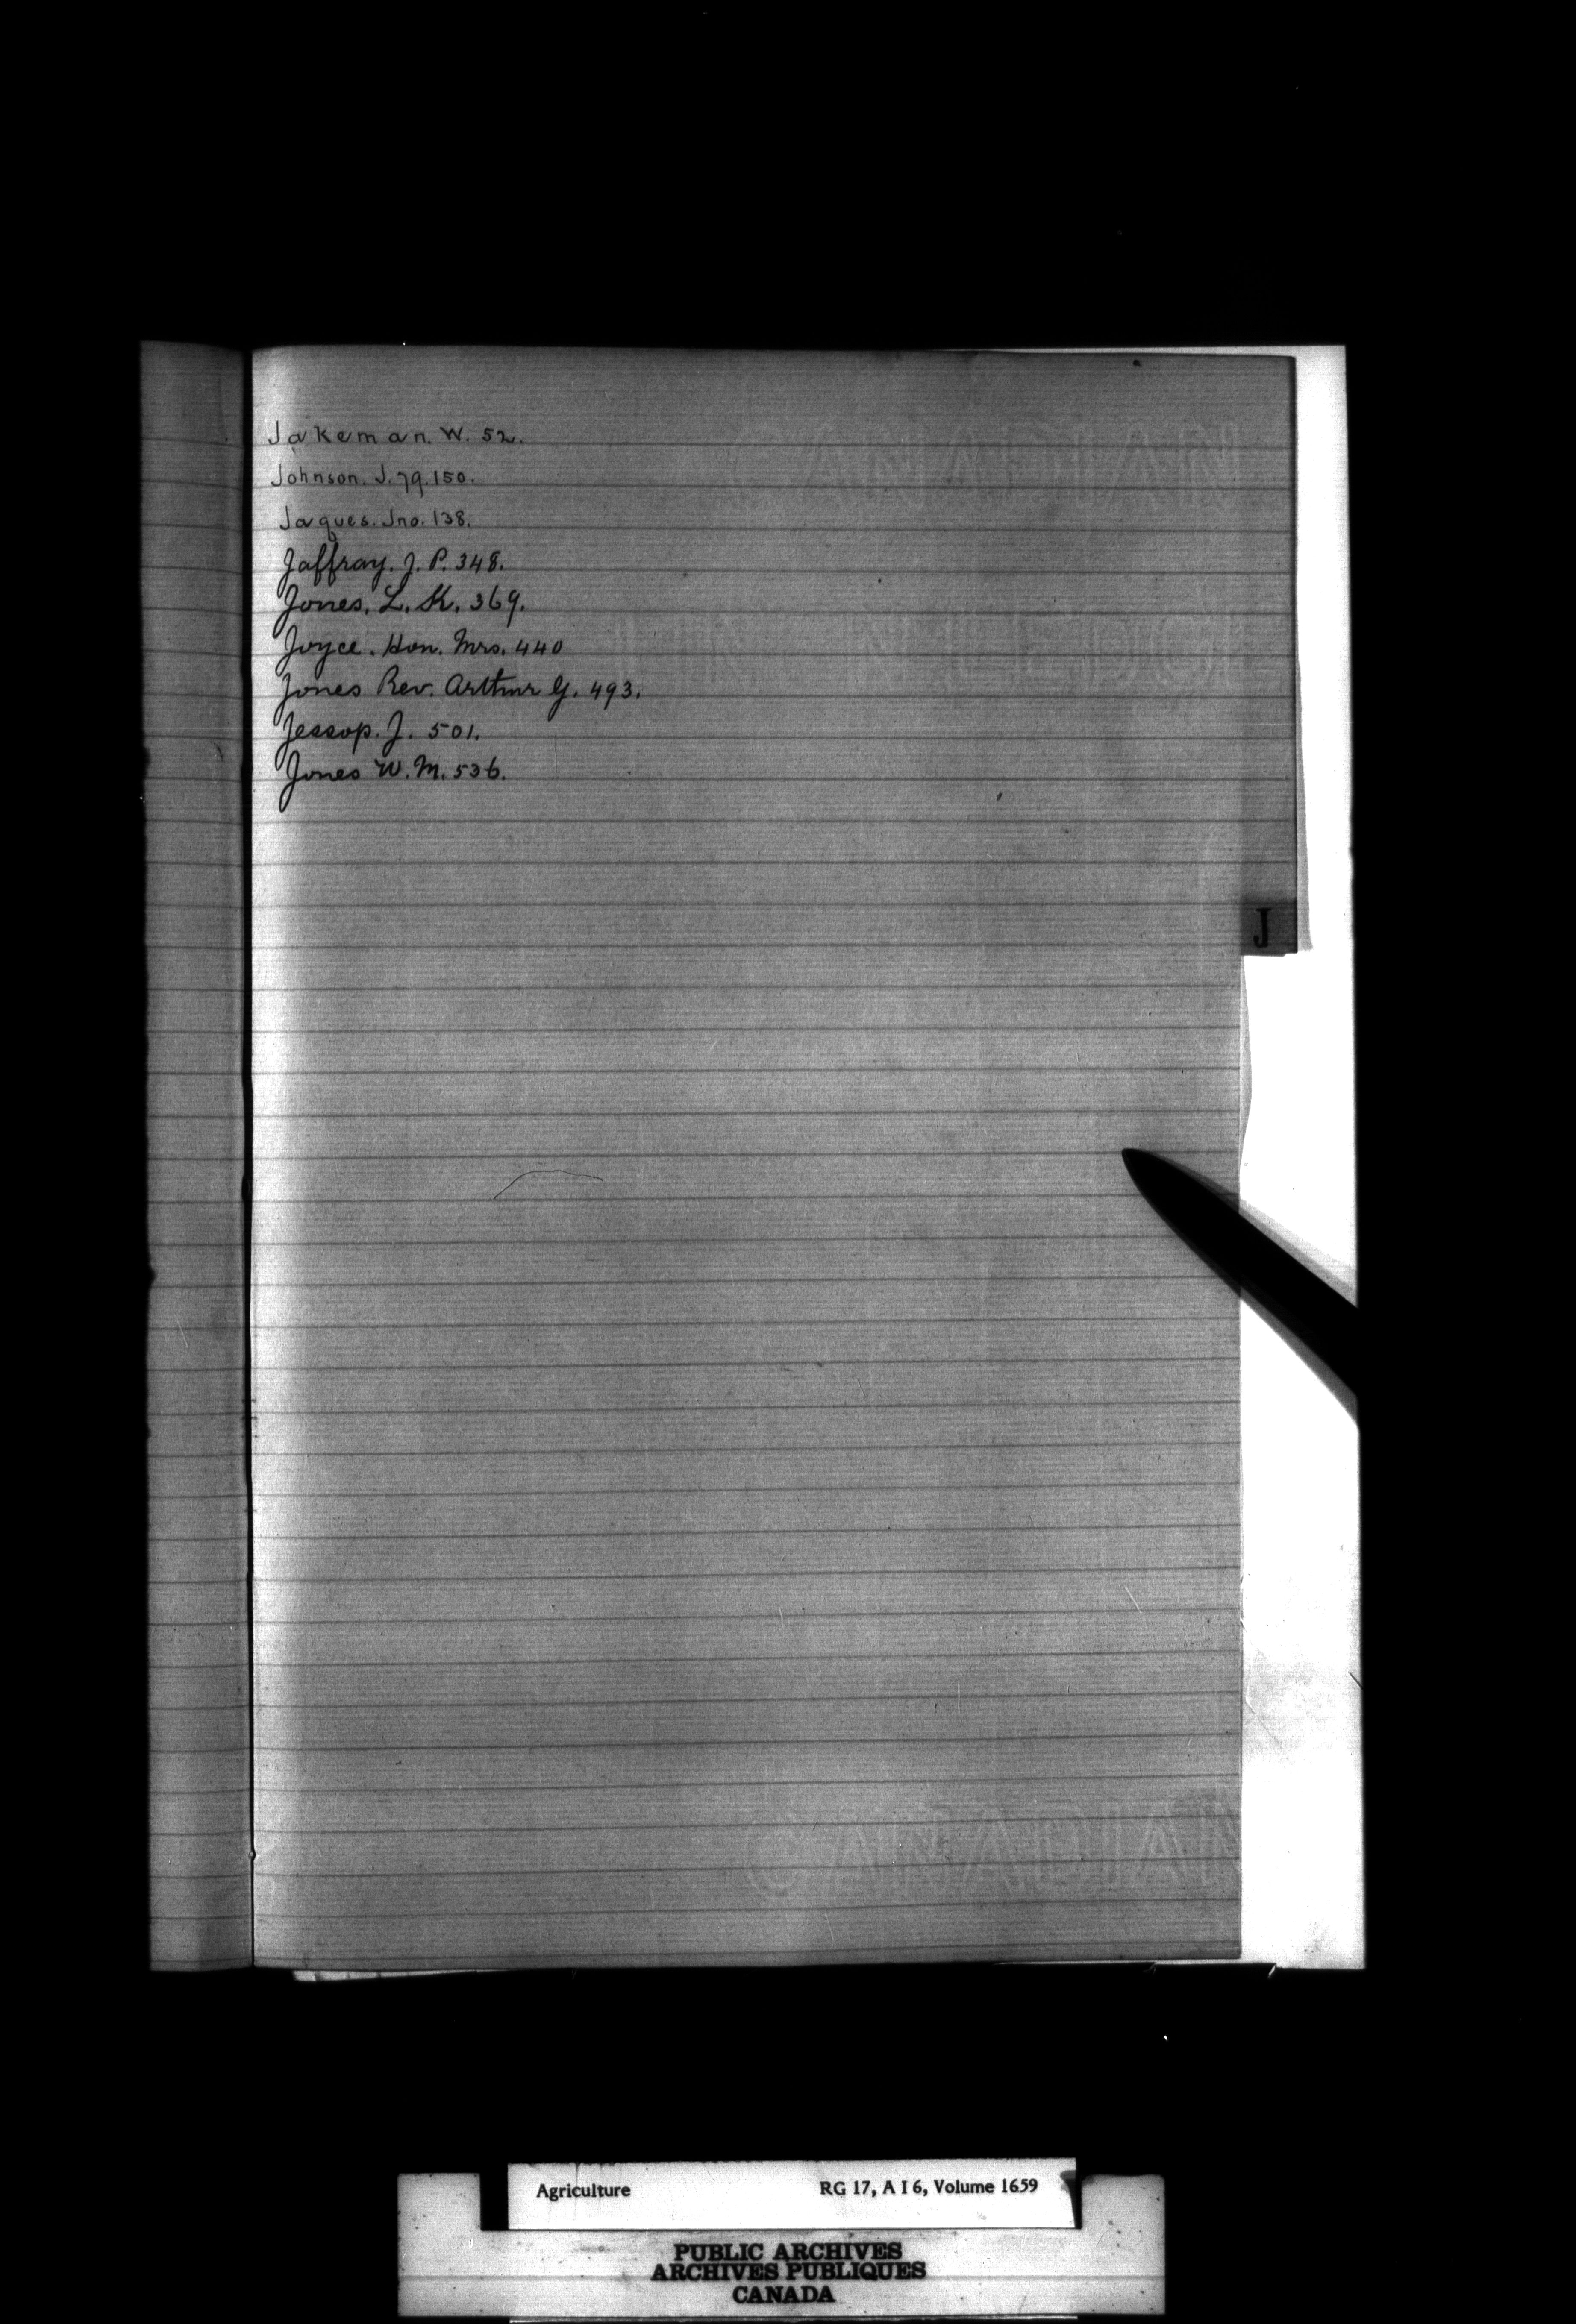 Jakeman. W. 52.
Johnson. J. 79. 150.
Jaques. Jno. 138.
Jaffray. J. P. 348.
Jones. L. K. 369.
Joyce. Hon. Mrs. 440
Jones Rev. Arthur G. 493.
Jessop. J. 501.
Jones W. M. 536.
J
CANADIAN
Agriculture RG 17, A I 6, Volume 1659
PUBLIC ARCHIVES
ARCHIVES PUBLIQUES
CANADA